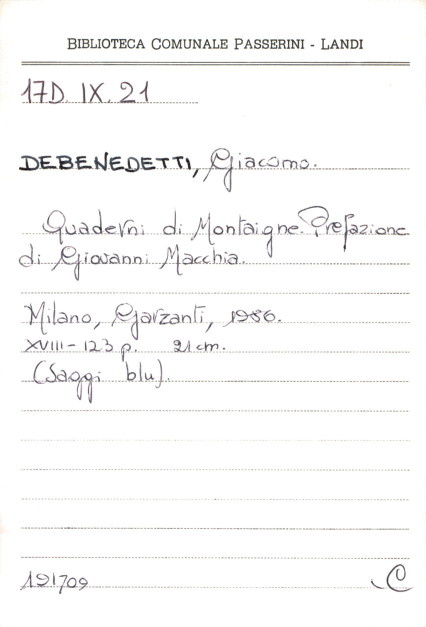 BIBLIOTECA COMUNALE PASSERINI - LANDI
17D. IX. 21
DEBENEDETTI, Giacomo.
Quaderni di Montaigne. Prefazione
di Giovanni Macchia.
Milano, Garzanti, 1986.
XVIII-123 p. 21 cm.
(Saggi blu).
191709
C